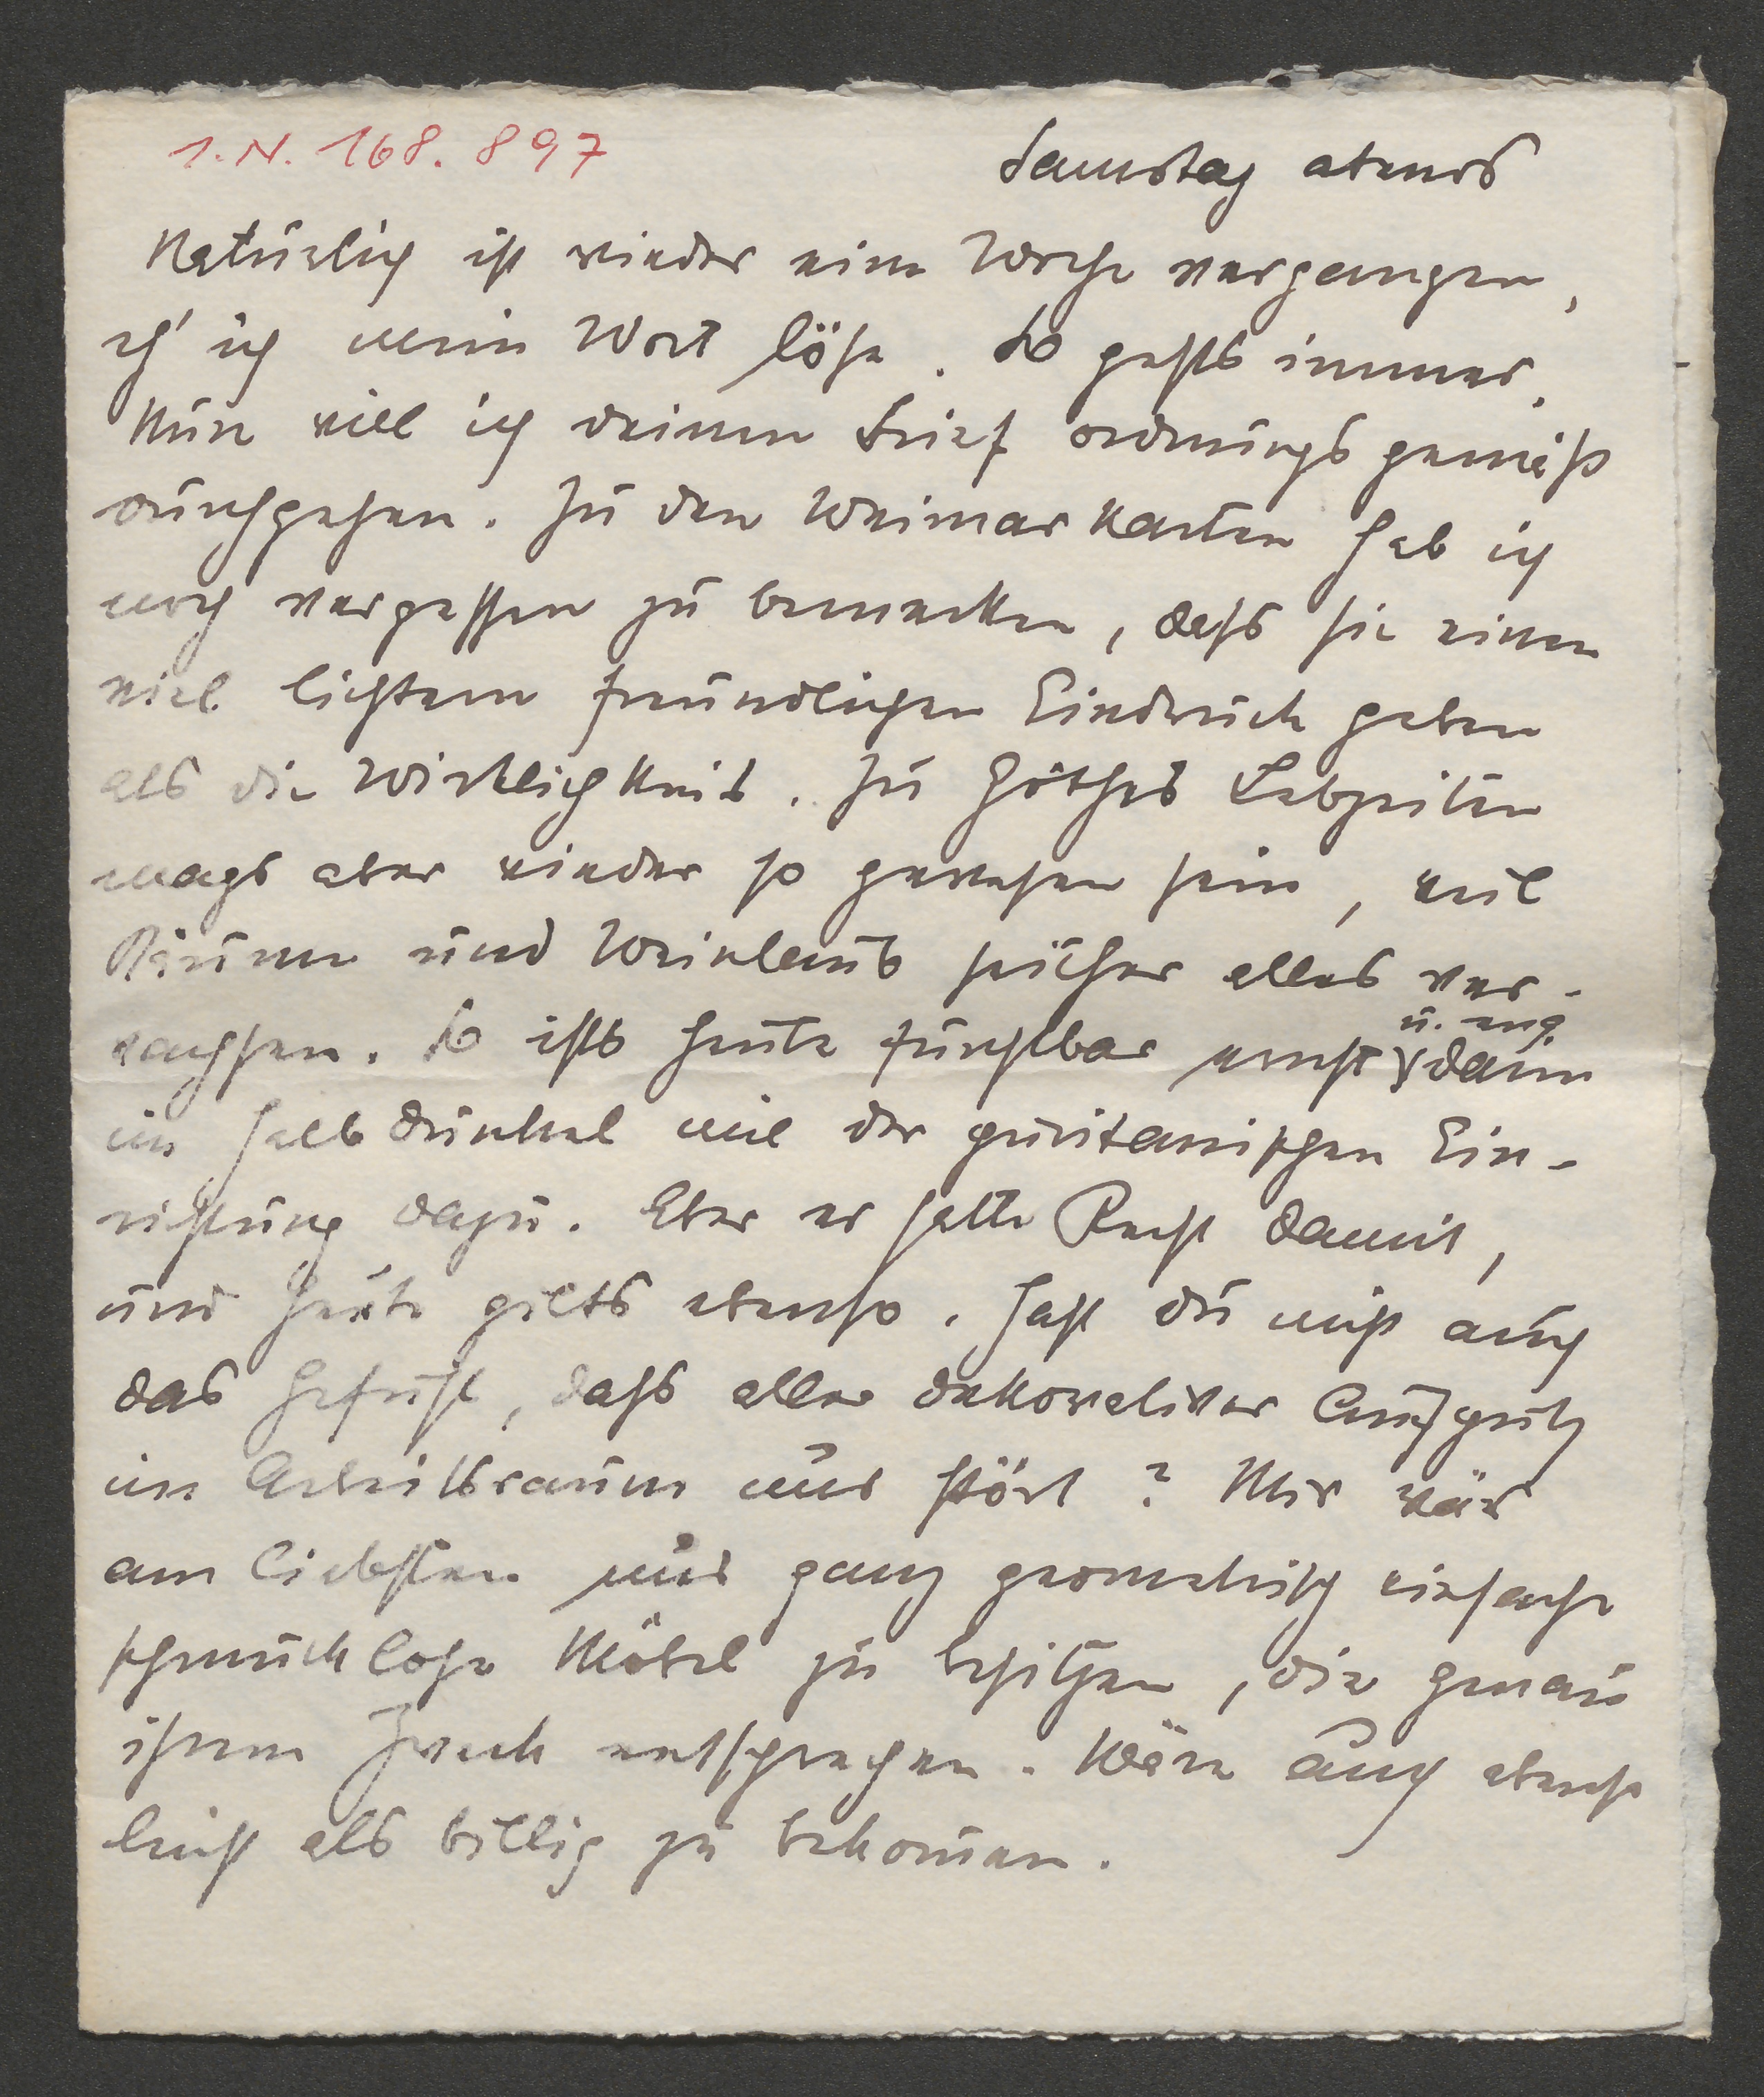 I.N. 168.897
Samstag abends
Natürlich ist wieder eine Woche vergangen,
eh' ich mein Wort löse. So gehts immer.
Nun will ich deinen Brief ordnungsgemäß
durchgehen. Zu den Weimarkarten hab ich
noch vergessen zu bemerken, dass sie einen
viel lichtern freundlichen Eindruck geben
als die Wirklichkeit. Zu Göthes Lebzeiten
mags aber wieder so gewesen sein, weil
Bäume und Weinlaub seither alles ver-
wachsen. So ists heute furchtbar ernst u. eng darin
im Halbdunkel mit der puritanischen Ein-
richtung dazu. Aber er hatte Recht damit,
und heute gilts ebenso. Hast du nicht auch
das Gefühl, dass aller dekorativer Aufputz
im Arbeitsraum nur stört? Mir wär
am liebsten nur ganz geometrisch einfache
schmucklose Möbel zu besitzen, die genau
ihrem Zweck entsprechen. Wäre auch ebenso
leicht als billig zu bekommen.